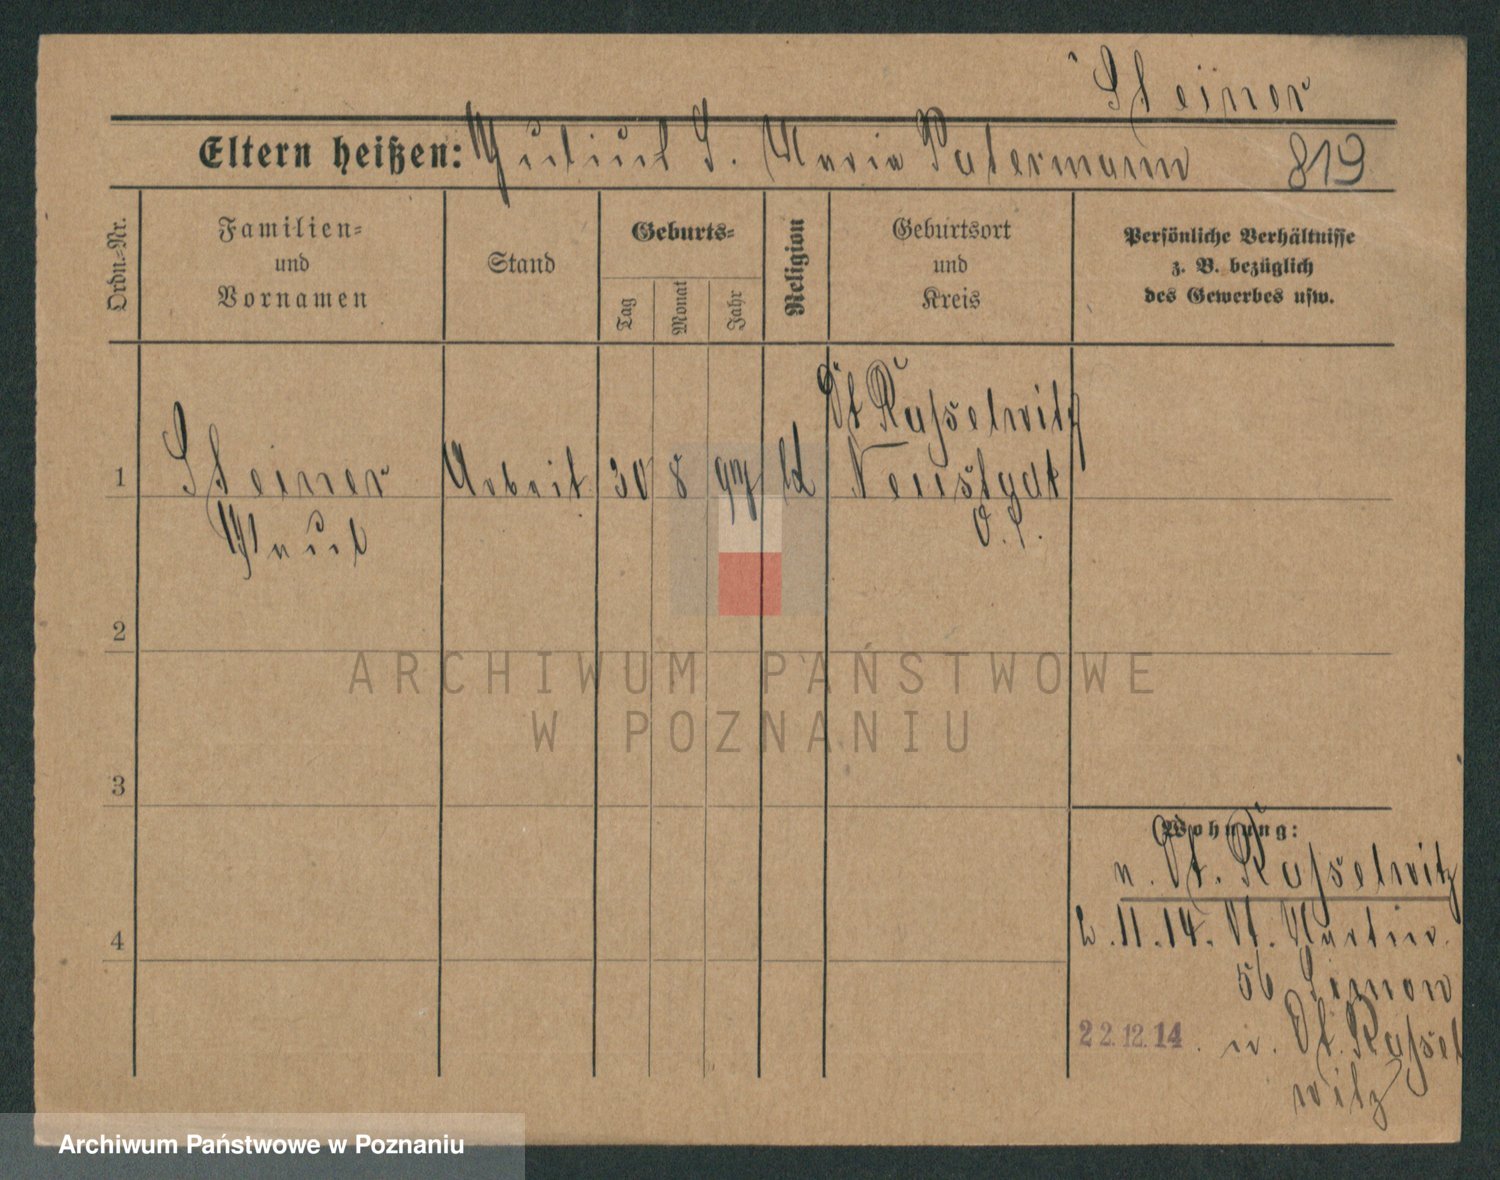 Steiner
Eltern heißen: Paul S. Maria Patermann 819
Ordn.-Nr.
Familien-
und
Vornamen
Stand
Geburts-
Tag
Monat
Jahr
Religion
Geburtsort
und
Kreis
Persönliche Verhältnisse
z. B. bezüglich
des Gewerbes usw.
Dt Rasselwitz
1 Steiner Arbeit 30 8 97 Neustadt
Paul O.S.
2
ARCHIWUM PAŃSTWOWE
W POZNANIU
3
Wohnung:
n. Dt. Rasselwitz
2.11.14. St. Martin.
56 Simon
22.12.14. n. Dt. Rassel
witz
4
Archiwum Państwowe w Poznaniu